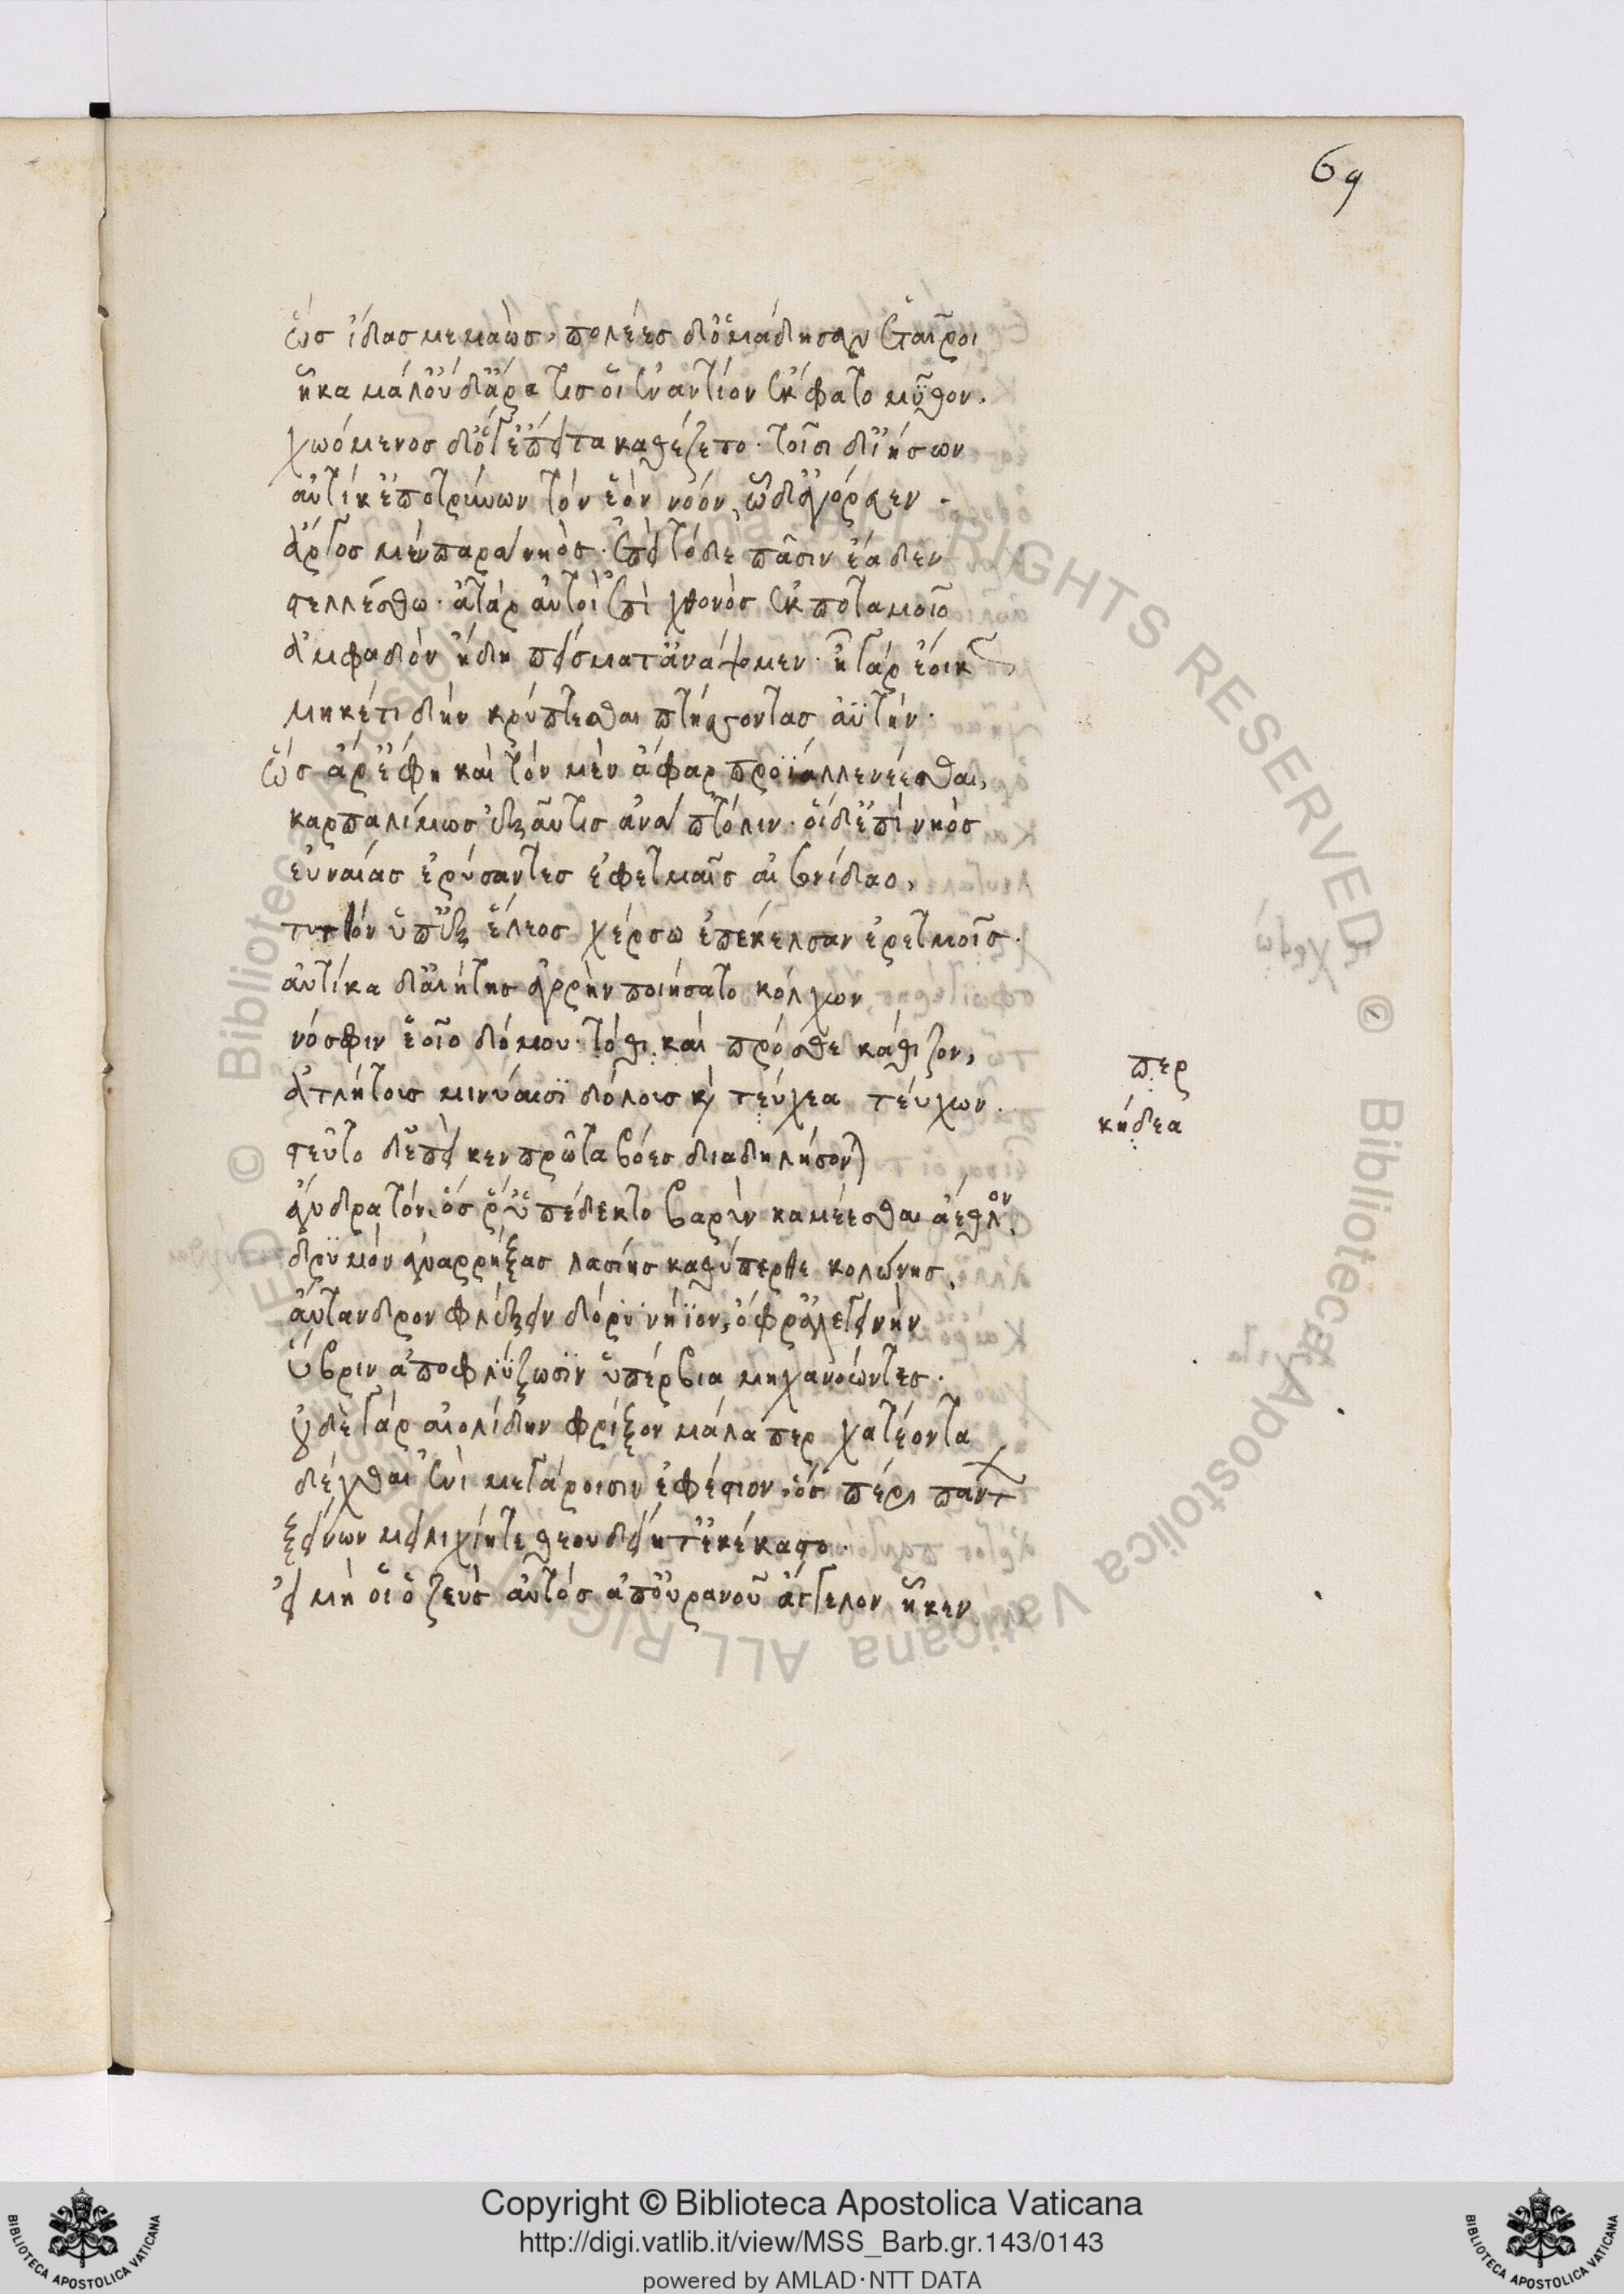 69
ὣσ ἴδασ μεμαὼσ, πολέεσ δ' ὁμάδησαν ἑταῖροι
ἧκα μάλ' οὐδ' ἄρα τισ οἱ ἐναντίον ἔκφατο μῦθον.
χωόμενοσ δ' ὅγ' ἔπειτα καθέζετο. τοῖσι δ' ἰήσων
αὐτίκ' ἐποτρύνων τὸν ἑὸν νόον, ὧδ' ἀγόρευεν.
ἄργοσ μὲν παρὰ νηὸσ. ἐπεὶ τόδε πᾶσιν ἕαδεν
στελλέσθω. ἀτὰρ αὐτοὶ ἐπὶ χθονὸσ ἐκ ποταμοῖο
ἀμφαδὸν ἤδη πείσματ' ἀνάψομεν. ἦ γὰρ ἔοικε
μηκέτι δὴν κρύπτεσθαι πτήσσοντασ ἀϋτήν.
ὣσ ἄρ' ἔφη καὶ τὸν μὲν ἄφαρ προΐαλλε νέεσθαι,
καρπαλίμωσ ἐξαῦτισ ἀνὰ πτόλιν. οἱ δ' ἐπὶ νηὸσ
εὐναίασ ἐρύσαντεσ ἐφετμαῖσ αἰσονίδαο,
τυτθὸν ὑπ' ἐξ ἕλεοσ χέρσω ἐπέκελσαν ἐρετμοῖσ.
αὐτίκα δ' αἰήτησ ἀγορὴν ποιήσατο κόλχων
νόσφιν ἑοῖο δόμου. τόθι καὶ πρόσθε κάθιζον,
περ
ἀτλήτουσ μινύαισϊ δόλουσ καὶ τεύχεα τεύχων.
κήδεα
στεῦτο δ' ἐπεὶ κεν πρῶτα βόεσ διαδηλήσονται
ἄνδρα τὸν ὅσ ῥ' ὑπέδεκτο βαρὺν καμέεσθαι ἄεθλον.
δρϋμὸν ἀναρρήξασ λασίησ καθύπερθε κολώνησ,
αὔτανδρον φλέξειν δόρϋ νήϊον, ὄφρ' ἀλεγεινὴν
ὕβριν ἀποφλύξωσϊν ὑπέρβια μηχανόωντεσ.
οὐδὲ γὰρ αἰολίδην φρίξον μάλα περ χατέοντα
δέχθαι ἐνὶ μεγάροισιν ἐφέστιον, ὃσ πέρι πάντων
ξείνων μειλιχίη τε θεουδείη τ' ἐκέκαστο.
εἰ μὴ οἱ ὁ ζεὺσ αὐτὸσ ἀπ' οὐρανοῦ ἄγγελον ἧκεν
Copyright © Biblioteca Apostolica Vaticana
http://digi.vatlib.it/view/MSS_Barb.gr.143/0143
powered by AMLAD·NTT DATA